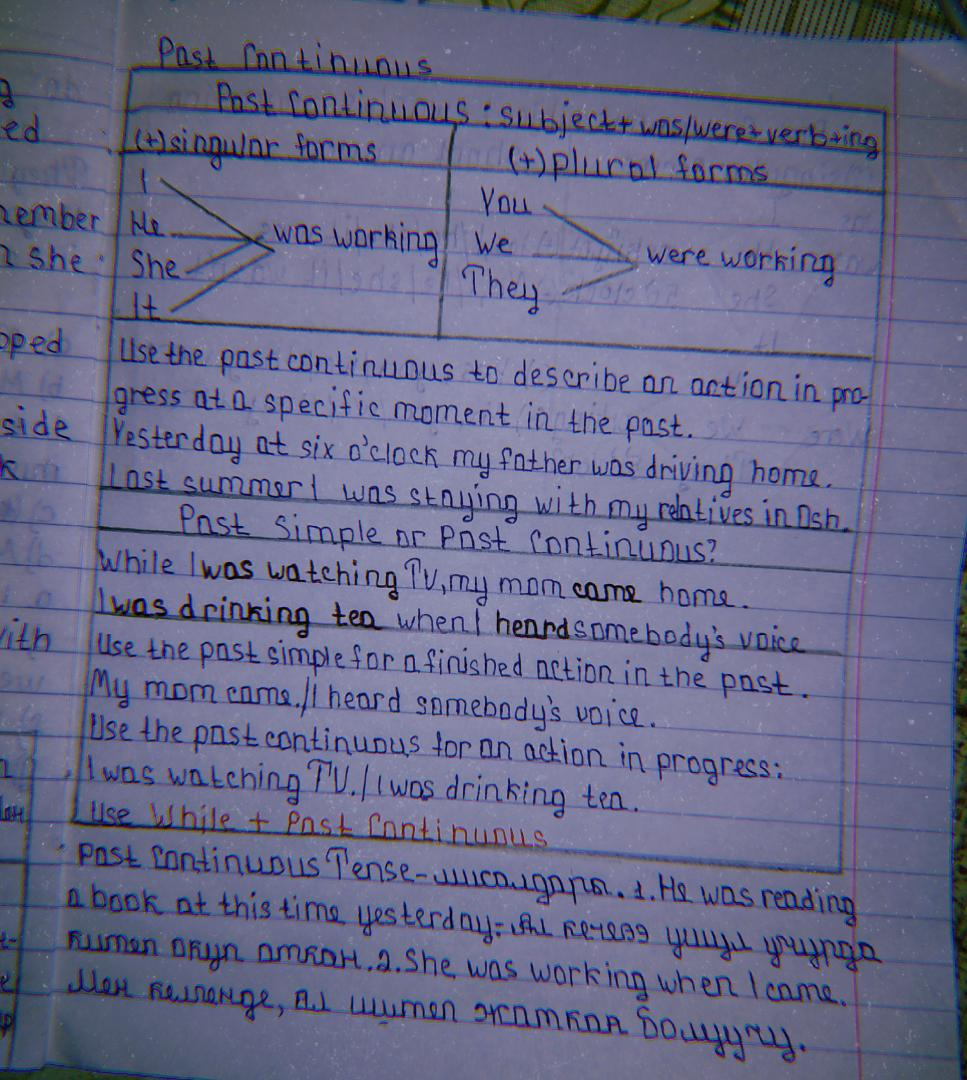 Past Continuous
Past Continuous : subject + was/were + verb + ing
(+) singular forms
I
He
She
It
was working
(+) plural forms
You
We
They
were working
Use the past continuous to describe an action in pro-
gress at a specific moment in the past.
Yesterday at six o'clock my father was driving home.
Last summer I was staying with my relatives in Osh.
Past Simple or Past Continuous?
While I was watching TV, my mom came home.
I was drinking tea when I heard somebody's voice
Use the past simple for a finished action in the past.
My mom came./I heard somebody's voice.
Use the past continuous for an action in progress:
I was watching TV./I was drinking tea.
Use While + Past Continuous
Past Continuous Tense - мисалдары. 1. He was reading
a book at this time yesterday - Ал кечээ ушул учурда
китеп окуп аткан. 2. She was working when I came.
Мен келгенде, ал иштеп жаткан болуучу.
ed
member
she
oped
side
k
with